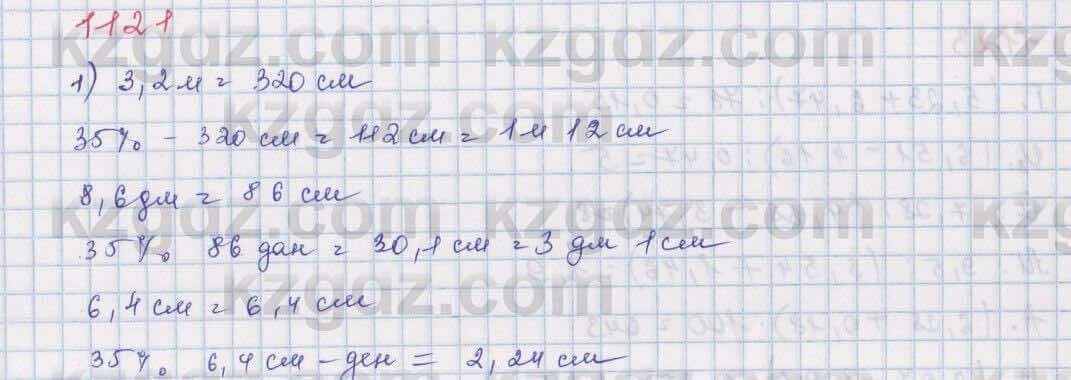 1121
1) 3,2 м = 320 см
35% - 320 см = 112 см = 1 м 12 см
8,6 дм = 86 см
35% 86 дан = 30,1 см = 3 дм 1 см
6,4 см = 6,4 см
35% 6,4 см - ден = 2,24 см
kzgdz.com